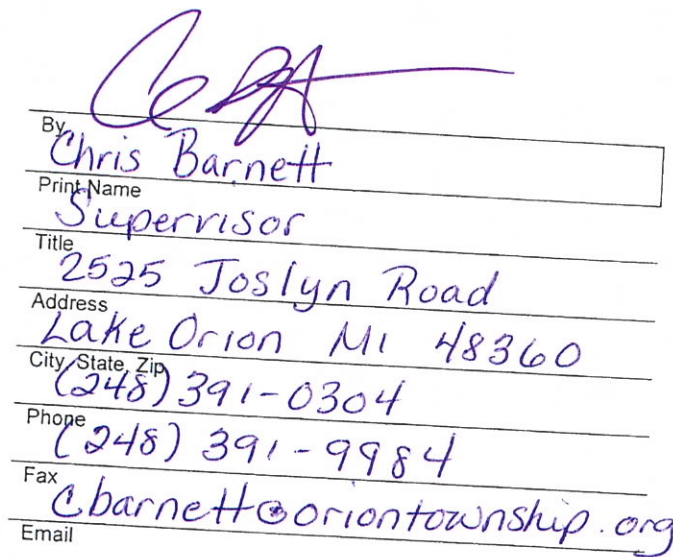 By
Chris Barnett
Print Name
Supervisor
Title
2525 Joslyn Road
Address
Lake Orion MI 48360
City, State, Zip
(248) 391-0304
Phone
(248) 391-9984
Fax
cbarnett@oriontownship.org
Email